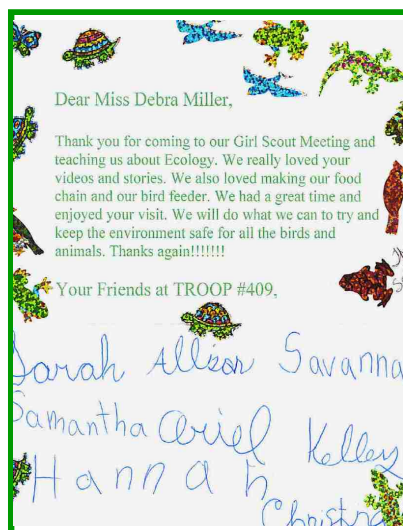 Dear Miss Debra Miller,
Thank you for coming to our Girl Scout Meeting and
teaching us about Ecology. We really loved your
videos and stories. We also loved making our food
chain and our bird feeder. We had a great time and
enjoyed your visit. We will do what we can to try and
keep the environment safe for all the birds and
animals. Thanks again!!!!!!!
Your Friends at TROOP #409,
Sarah Allison Savanna
Samantha Ariel Kelley
Hannah